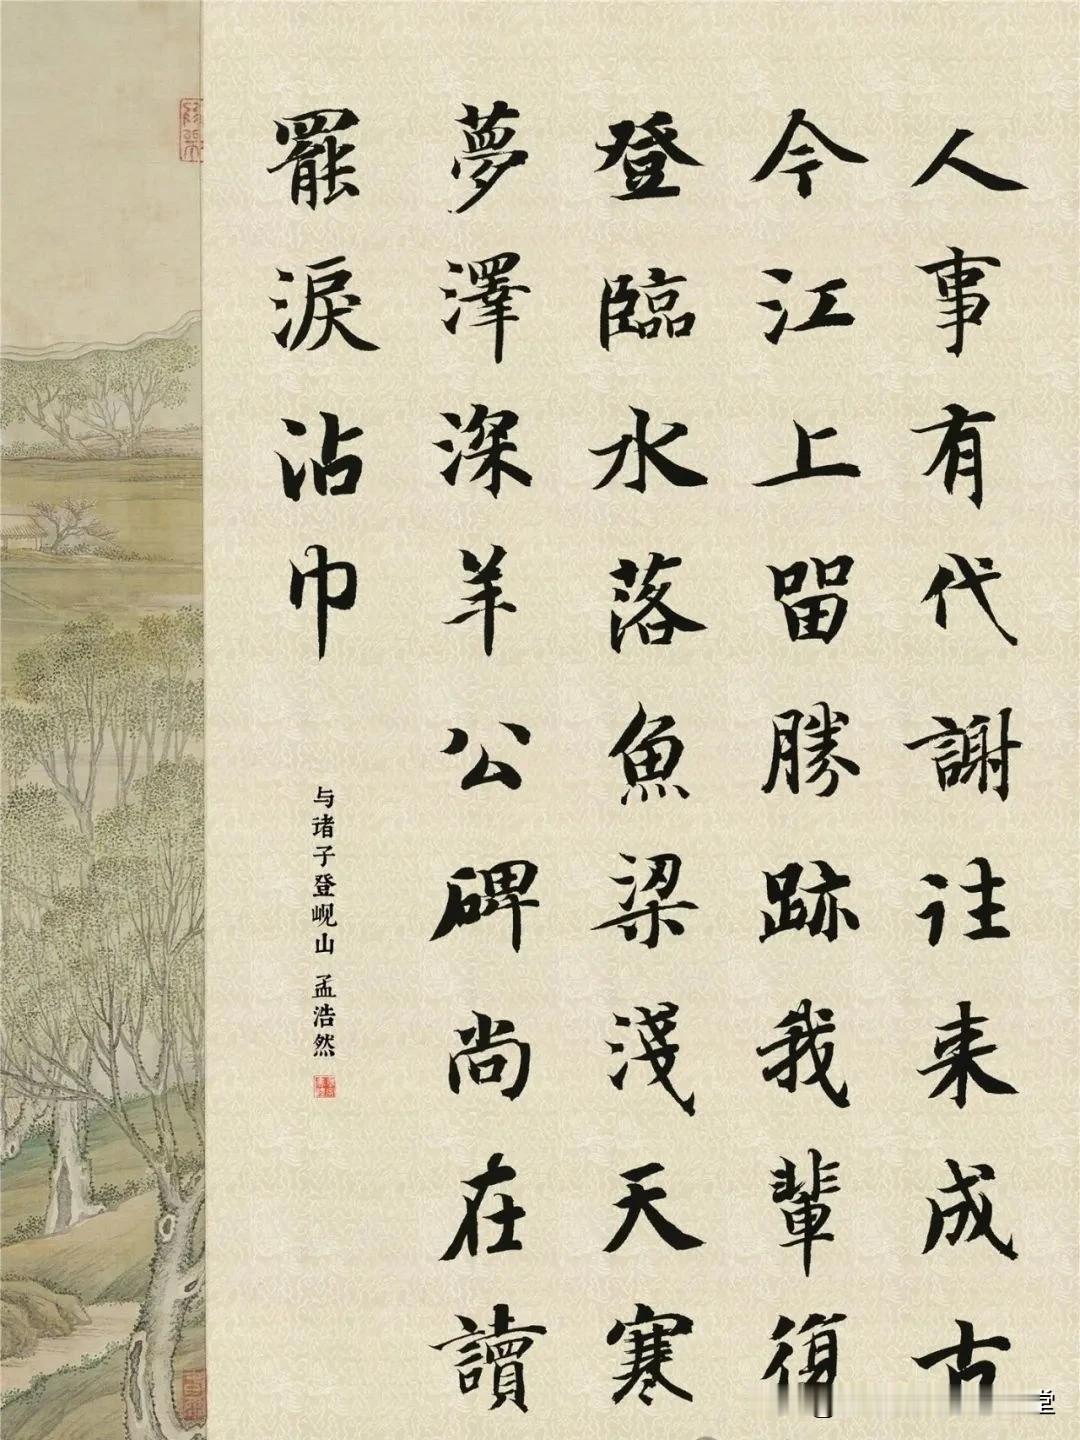 人事有代謝往来成古
今江上留勝跡我輩復
登臨水落魚梁淺天寒
夢澤深羊公碑尚在讀
罷淚沾巾
与诸子登岘山 孟浩然